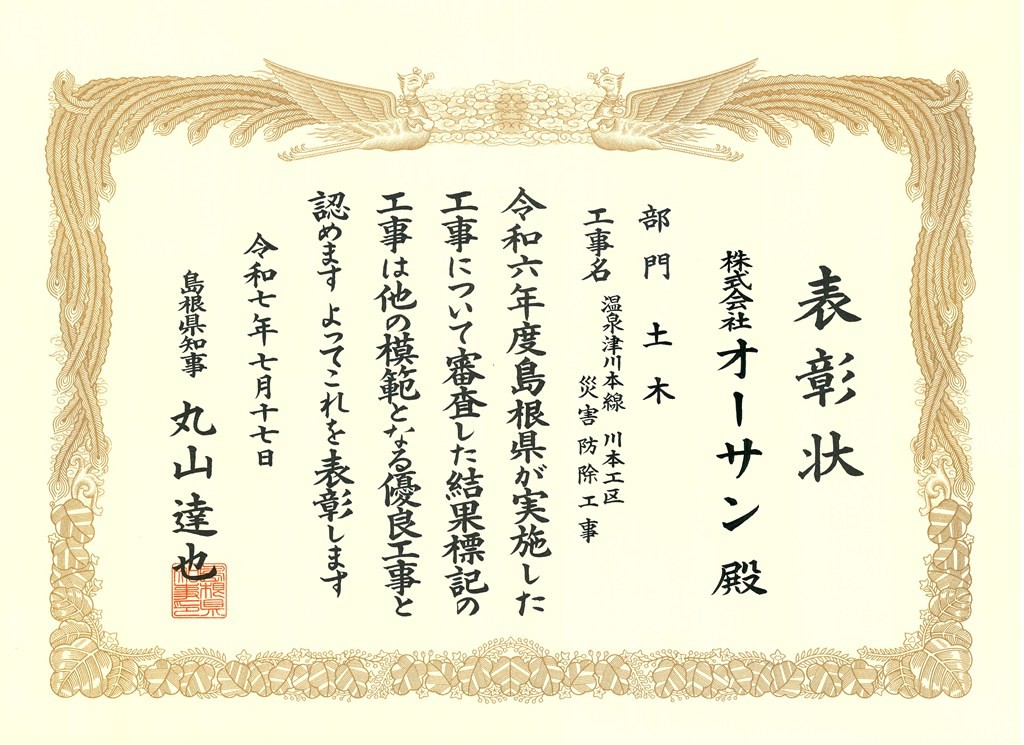 表彰状
株式会社 オーサン 殿
部門 土木
工事名 温泉津川本線 川本工区
災害防除工事
令和六年度島根県が実施した
工事について審査した結果標記の
工事は他の模範となる優良工事と
認めます よってこれを表彰します
令和七年七月十七日
島根県知事 丸山達也
島根県
知事印